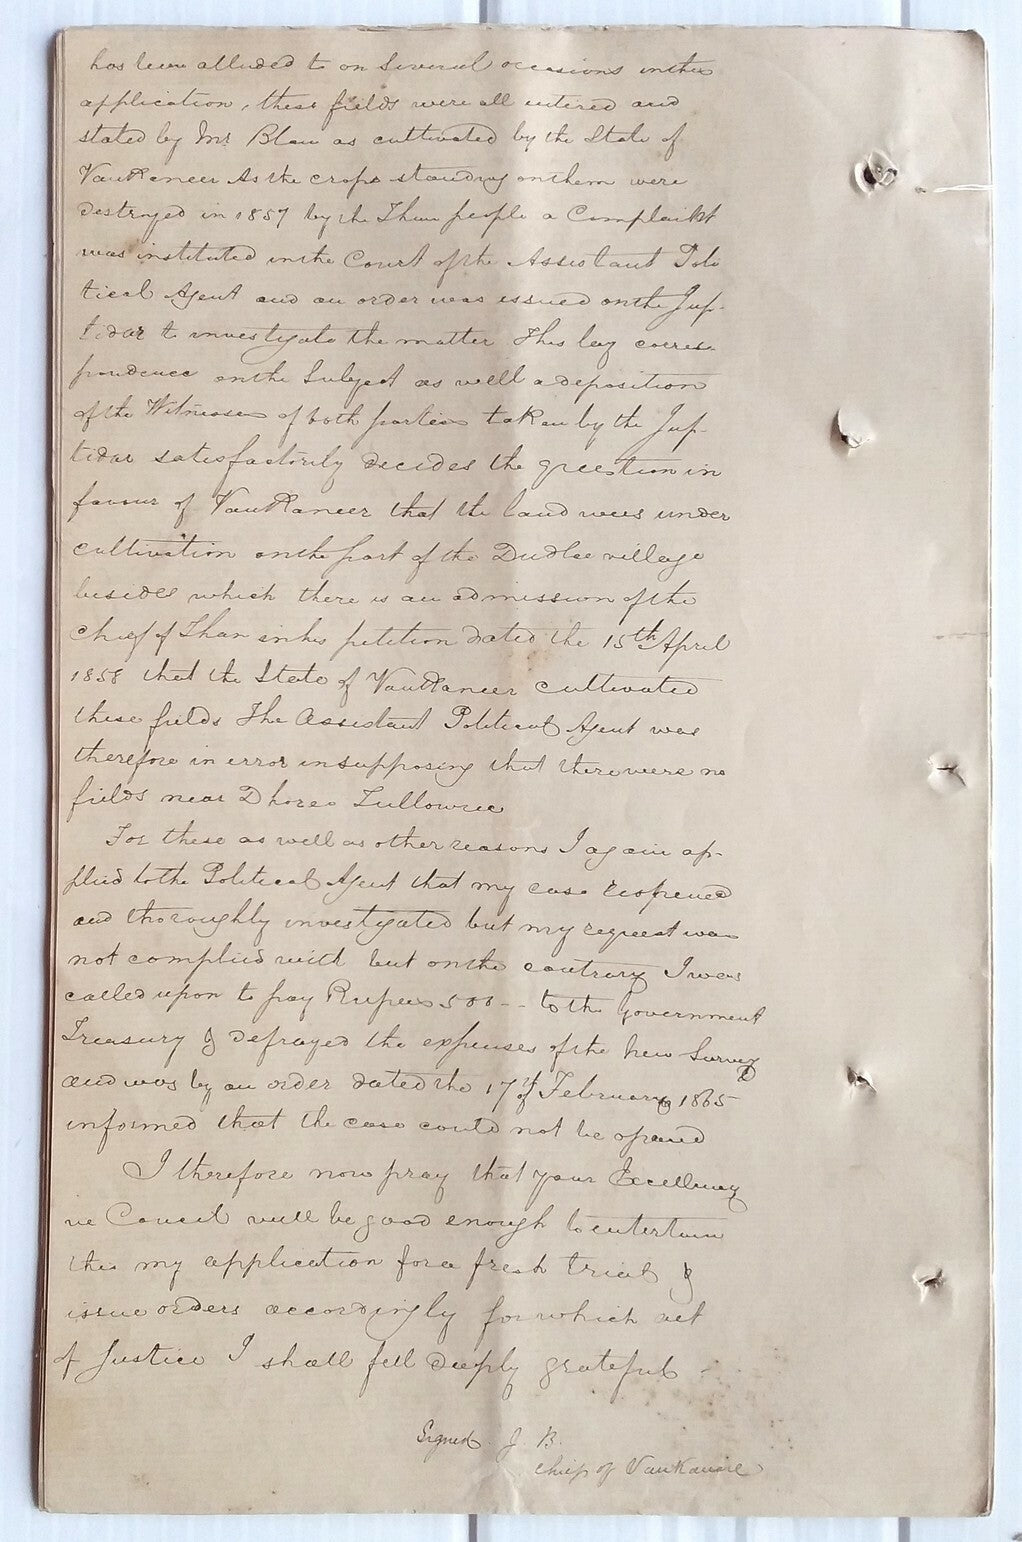 has been alluded to on several occasions in this
application, these fields were all entered and
stated by Mr. Blan as cultivated by the State of
Vankaneer As the crops standing on them were
destroyed in 1857 by the Than people a Complaint
was instituted in the Court of the Assistant Poli
tical Agent and an order was issued on the Jup-
tidar to investigate the matter This corres-
pondence on the Subject as well a deposition
of the Witnesses of both parties taken by the Jup-
tidar satisfactorily decides the question in
favour of Vankaneer that the land was under
cultivation on the part of the Dudlee village
besides which there is an admission of the
Chief of Than in his petition dated the 15th April
1858 that the State of Vankaneer cultivated
these fields The Assistant Political Agent was
therefore in error in supposing that there were no
fields near Dhoree Tullowree
For these as well as other reasons I again ap-
plied to the Political Agent that my case reopened
and thoroughly investigated but my request was
not complied with but on the contrary I was
called upon to pay Rupees 500 -- to the Government
Treasury & defrayed the expenses of the new Survey
and was by an order dated the 17th of February 1865
informed that the case could not be opened
I therefore now pray that your Excellency
in Council will be good enough to entertain
this my application for a fresh trial &
issue orders accordingly for which act
of Justice I shall fell deeply grateful -
Signed J. B.
Chief of Vankaneer